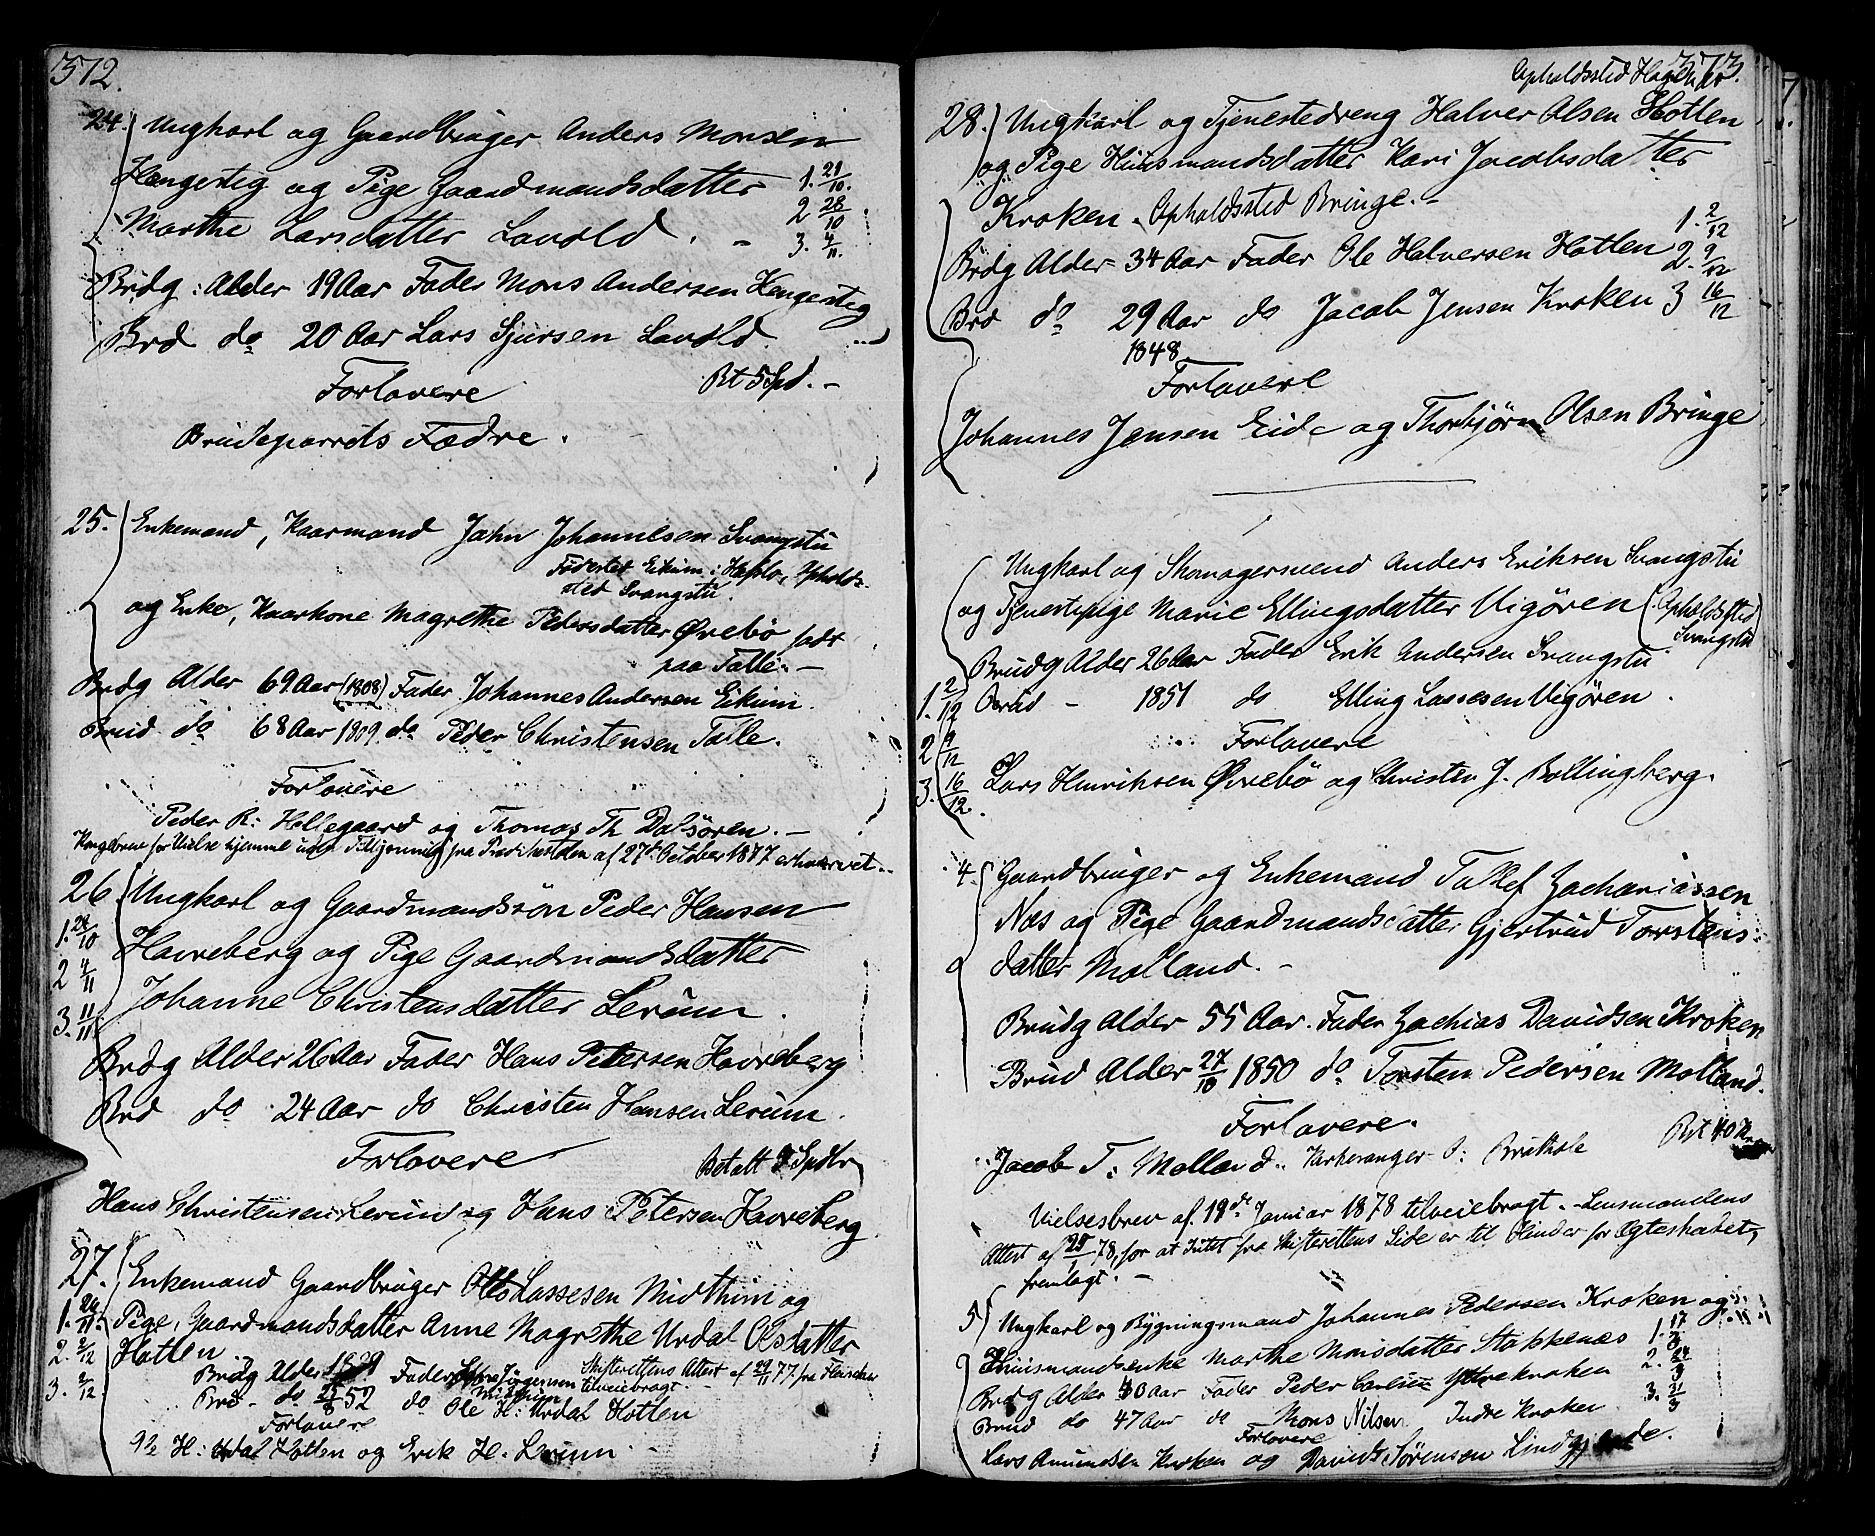 372.
24. Ungkarl og Gaardbruger Anders Monsen
Hængestig og Pige Gaardmandsdatter 1. 21/10.
Marthe Larsdatter Lavold. - 2 28/10
3. 4/11.
Brdg: Alder 19 Aar Fader Mons Andersen Hengestig
Brd do 20 Aar Lars Sjursen Lavold
Forlovere Bt 5 Spd. -
Brudeparrets Fædre.
25. Enkemand, Kaarmand John Johannesen Svangstu
Fødested Eikum i Hafslo, Opholds-
sted Svangstu.
og Enke, Kaarkone Magrethe Pedersdatter Øvrebø født
paa Talle. -
Brdg Alder 69 Aar (1808) Fader Johannes Andersen Eikum.
Brud do 68 Aar 1809 do Peder Christensen Talle.
Forlovere
Peder R: Hillegaard og Thomas Th Dalsøren. -
Kongebrev for Vielse hjemme uden Tillysning fra Prædikestolen af 27de October 1877 erhvervet.
26. Ungkarl og Gaardmandssøn Peder Hansen
1. 28/10 Havreberg og Pige Gaardmandsdatter
2 4/11
3. 11/11. Johanne Christensdatter Lerum.
Brdg Alder 26 Aar Fader Hans Petersen Havreberg
Brd do 24 Aar do Christen Hansen Lerum.
Forlovere Betalt 2 Spdlr
Hans Christensen Lerum og Hans Petersen Havreberg.
27. Enkemand Gaardbruger Ole Lassesen Midthun og
1. 26/11. Pige, Gaardmandsdatter Anne Magrethe Urdal Olsdatter
2. 2/12 Hotlen
3. 2/12. Brudg Alder 1809 Fader Jørgensen Skifterettens Attest af 29/11 77 fra
Midthun tilveiebragt.
Brd - do 25/8 52 do Ole H: Urdal Hotlen
Forlovere
H: Urdal Hotlen og Erik H. Lerum.
Opholdssted
373.
28. Ungkarl og Tjenestedreng Halver Olsen Hotlen
og Pige Huusmandsdatter Kari Jacobsdatter
Kroken. Opholdssted Bringe. -
Brdg Alder 34 Aar Fader Ole Halversen Hotlen 1. 2/12
2. 9/12
Brd do 29 Aar do Jacob Jensen Kroken 3 16/12
1848
Forlovere
Johannes Jensen Eide og Thorbjørn Olsen Bringe
Ungkarl og Skomagersvend Anders Eriksen Svangstu
og Tjenestepige Marie Ellingsdatter Vigøren (Opholdssted
Svangstu)
Brudg Alder 26 Aar Fader Erik Andersen Svangstu
1. 2/12 Brud - 1851 do Elling Lassesen Vigøren.
2 9/12 Forlovere
3. 16/12. Lars Henriksen Øvrebø og Christen J. Bollingberg.
4. Gaardbruger og Enkemand Tollef Zachariassen
Næs og Pige Gaardmandsdatter Gjertrud Torstens-
datter Molland. -
Brudg Alder 55 Aar. Fader Zachias Davidsen Kroken
Brud Alder 27/10 1850 do Torsten Pedersen Molland.
Forlovere.
Jacob T: Molland
Vielsesbrev af 19de Januar 1878 tilveiebragt. - Lensmandens
Attest af 25/1 78, for at Intet fra Skifterettens Side er til Hinder for Ægteskabet,
fremlagt. -
5. Ungkarl og Bygningsmand Johannes Pedersen Kroken og
Huusmandsenke Marthe Monsdatter Stokkenæs 1. 17/3
Brdg Alder 40 Aar Fader Peder Carlsen Ytrekroken 2. 24/3
Brud do 47 Aar do Mons Nilsen Indre Kroken 3. 31/3
Forlovere
Lars Amundsen Kroken og David Sørensen